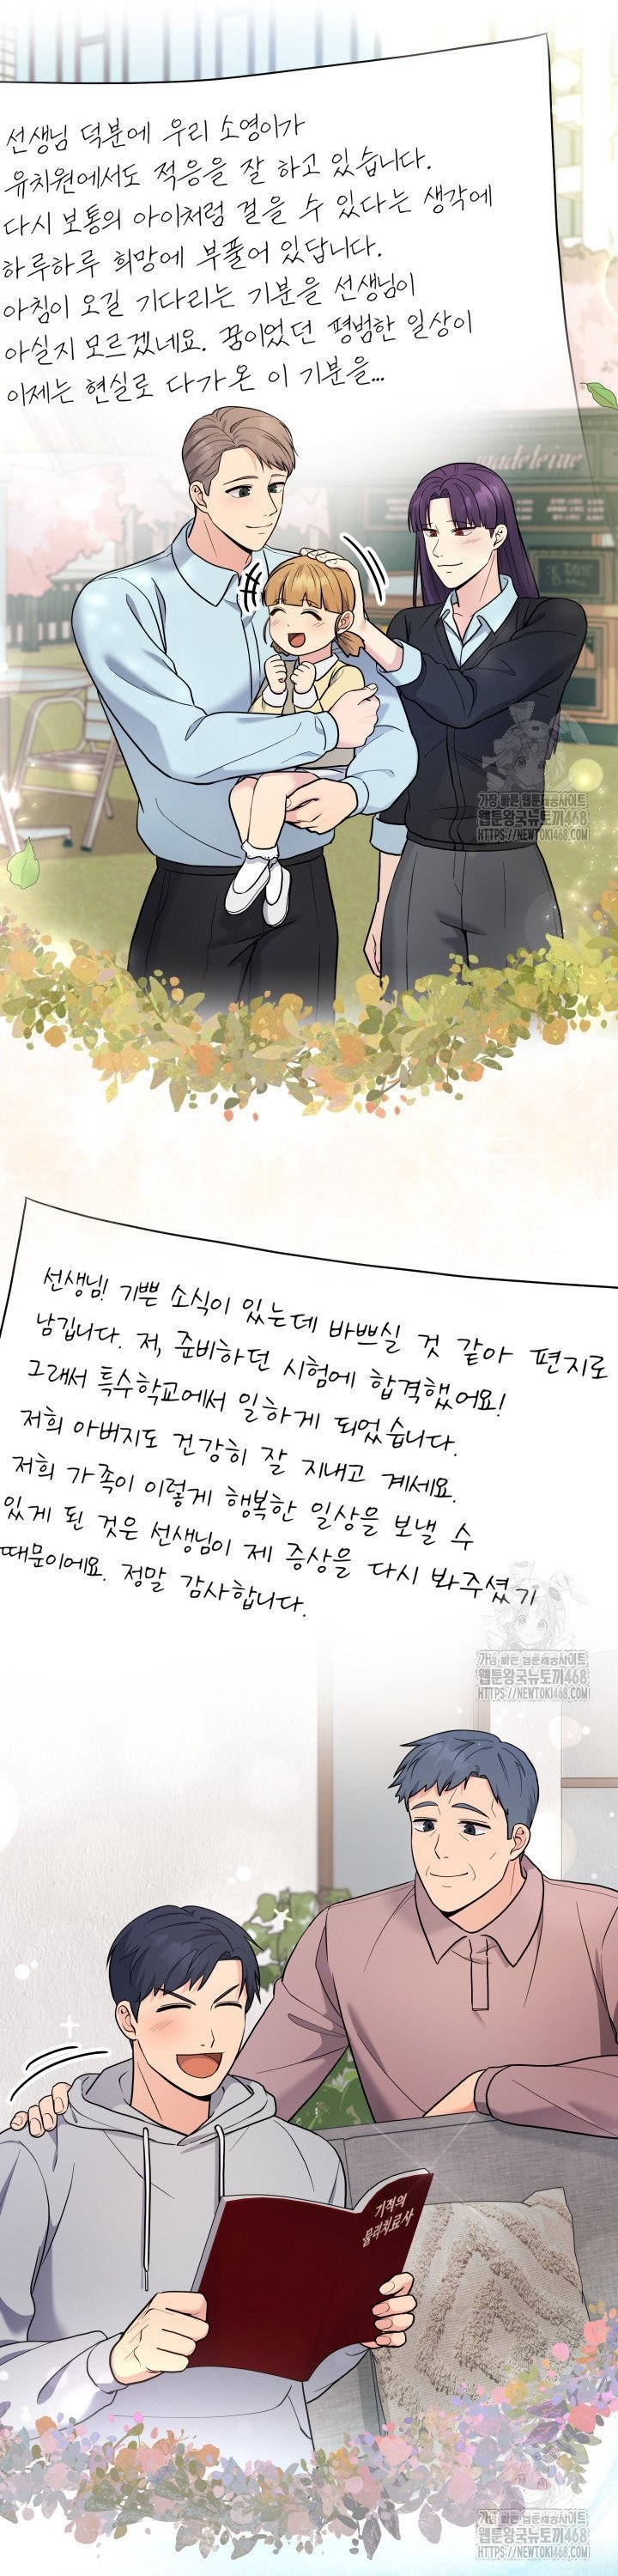 선생님 덕분에 우리 소영이가
유치원에서도 적응을 잘 하고 있습니다.
다시 보통의 아이처럼 걸을 수 있다는 생각에
하루하루 희망에 부풀어 있답니다.
아침이 오길 기다리는 기분을 선생님이
아실지 모르겠네요. 꿈이었던 평범한 일상이
이제는 현실로 다가온 이 기분을...
madeleine
가장 빠른 웹툰제공사이트
웹툰왕국뉴토끼468
HTTPS://NEWTOKI468
선생님! 기쁜 소식이 있는데 바쁘실 것 같아 편지로
남깁니다. 저, 준비하던 시험에 합격했어요!
그래서 특수학교에서 일하게 되었습니다.
저희 아버지도 건강히 잘 지내고 계세요.
저희 가족이 이렇게 행복한 일상을 보낼 수
있게 된 것은 선생님이 제 증상을 다시 봐주셨기
때문이에요. 정말 감사합니다.
가장 빠른 웹툰제공사이트
웹툰왕국뉴토끼468
HTTPS://NEWTOKI468
기적의
물리치료사
가장 빠른 웹툰제공사이트
웹툰왕국뉴토끼468
HTTPS://NEWTOKI468